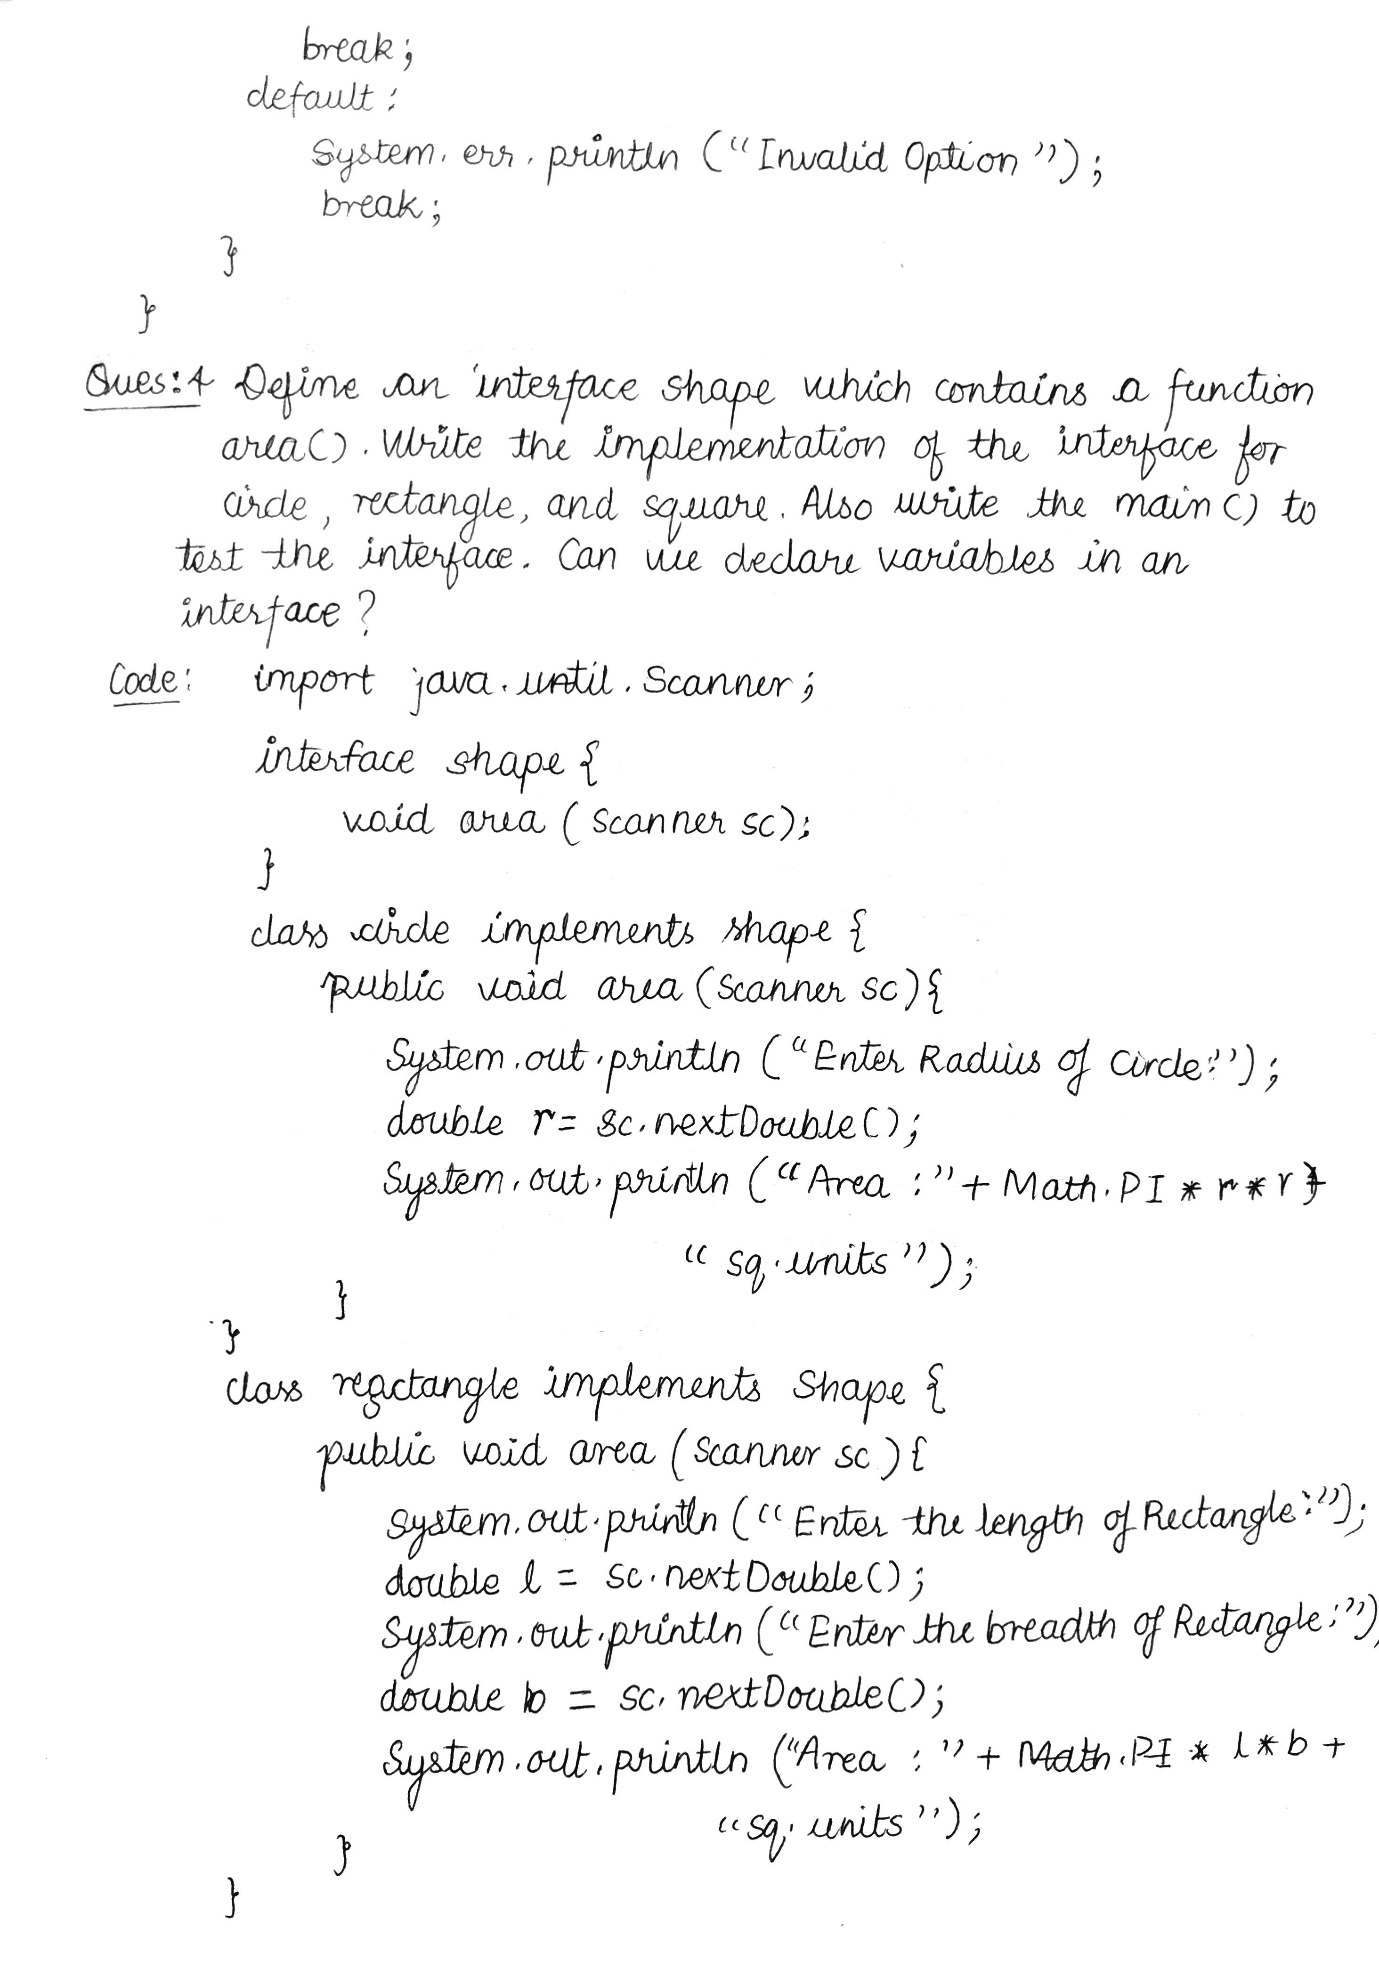 break;
default:
System.err.println ("Invalid Option");
break;
}
}
Ques:4 Define an interface shape which contains a function
area(). Write the implementation of the interface for
circle, rectangle, and square. Also write the main() to
test the interface. Can we declare variables in an
interface?
Code: import java.until.Scanner;
interface shape {
void area (Scanner sc);
}
class circle implements shape {
public void area (Scanner sc){
System.out.println ("Enter Radius of Circle:");
double r= sc.nextDouble();
System.out.println ("Area :"+ Math.PI * r*r +
"sq.units");
}
}
class regctangle implements Shape {
public void area (Scanner sc){
System.out.println ("Enter the length of Rectangle:");
double l = sc.nextDouble();
System.out.println ("Enter the breadth of Rectangle:")
double b = sc.nextDouble();
System.out.println ("Area :" + Math.PI * l*b +
"sq.units");
}
}